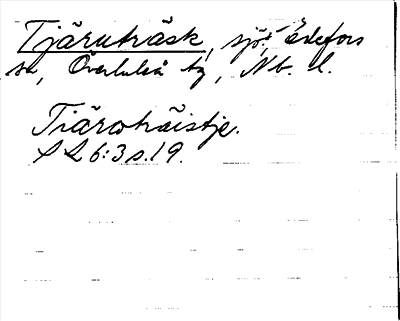 Tjäruträsk, sjö, Edefors
sn, Överluleå tg, Nb. l.
Tiäroträistje.
S L 6:3 s. 19.